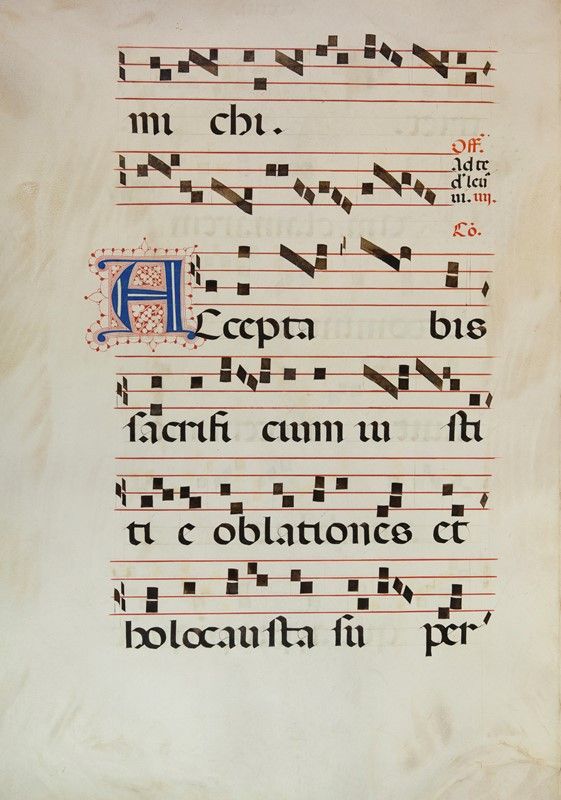 mi chi.
Off.
Ad te
Cō.
ACcepta bis
sacrifi cium iu sti
ti e oblationes et
holocausta su per